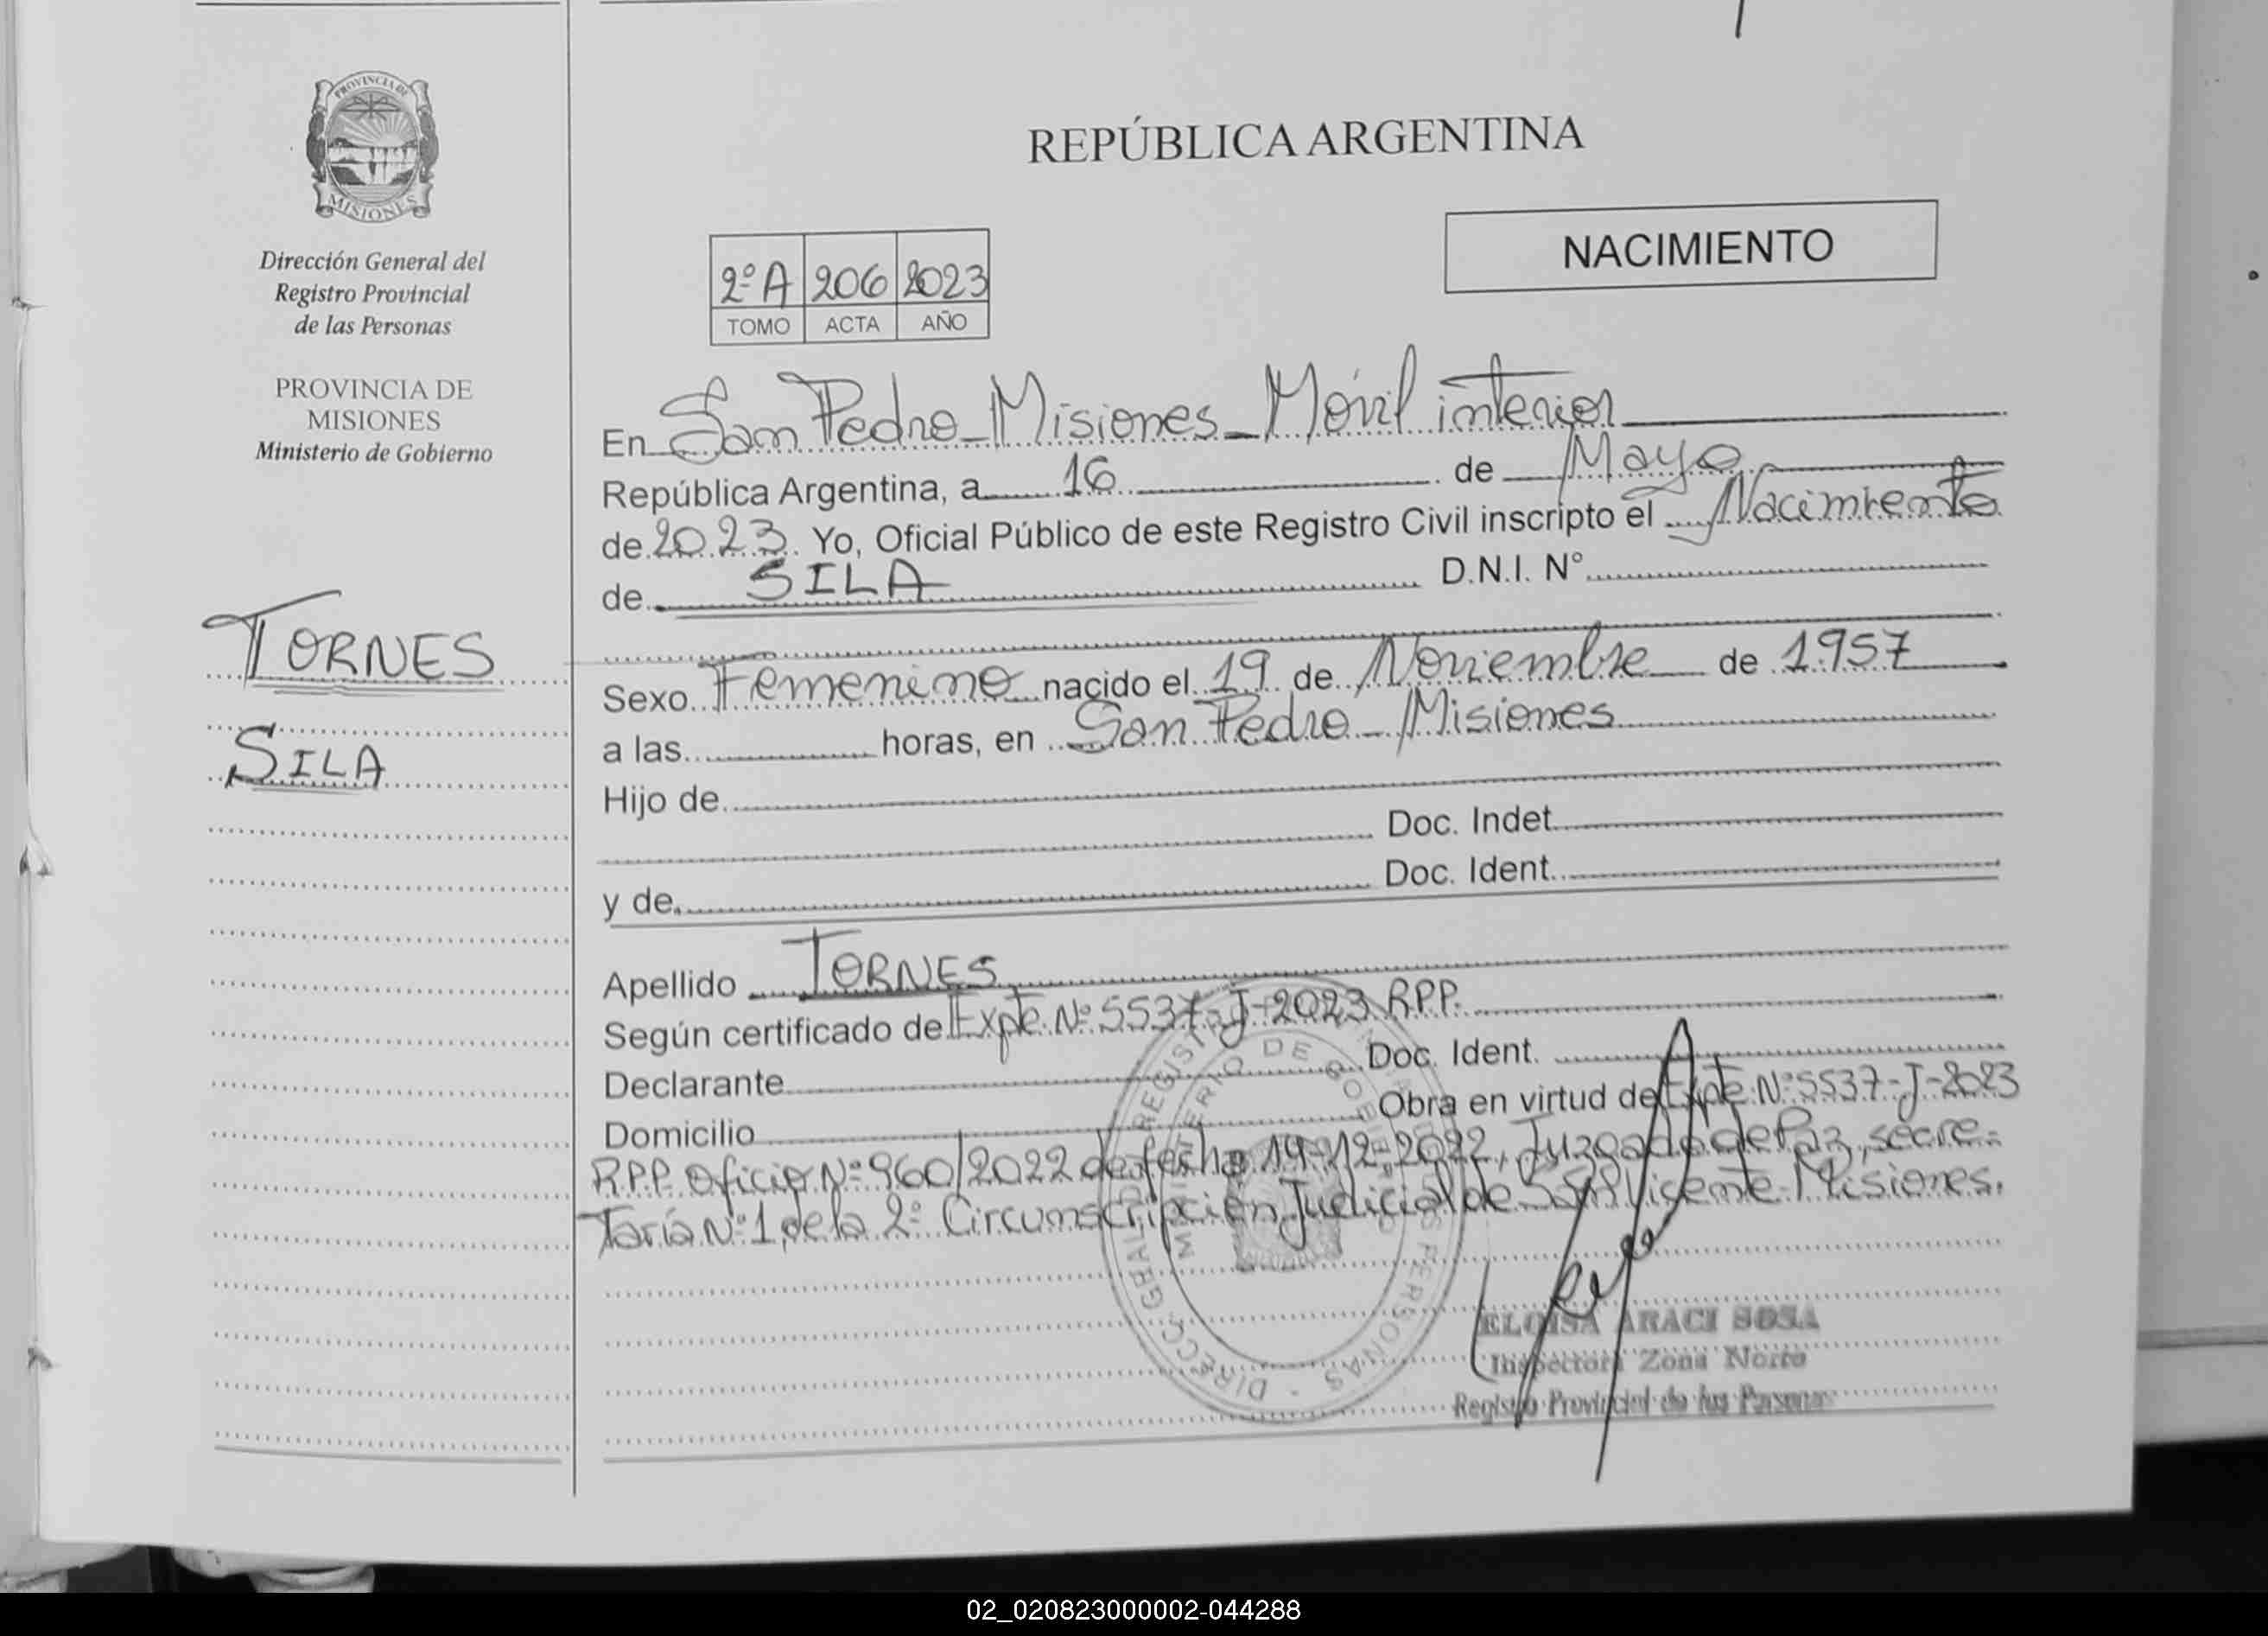 PROVINCIA DE
MISIONES
Dirección General del
Registro Provincial
de las Personas
PROVINCIA DE
MISIONES
Ministerio de Gobierno
TORNES
SILA
REPÚBLICA ARGENTINA
NACIMIENTO
2º A 206 2023
TOMO ACTA AÑO
En San Pedro - Misiones - Móvil interior
República Argentina, a 16 de Mayo
de 2023. Yo, Oficial Público de este Registro Civil inscripto el Nacimiento
de SILA D.N.I. N°
Sexo Femenino nacido el 19 de Noviembre de 1957
a las horas, en San Pedro - Misiones
Hijo de
Doc. Indet.
y de Doc. Ident.
Apellido TORNES
Según certificado de Expte. Nº 5537-J-2023 RPP.
Declarante Doc. Ident.
Domicilio Obra en virtud de Expte. Nº 5537-J-2023
R.P.P. Oficio Nº 960/2022 de fecha 19-12-2022, Juzgado de Paz, secre-
taría Nº 1 de la 2º Circunscripción Judicial de San Vicente - Misiones.
DIRECC. GERAL D REGIST PERSONAS
MINISTERIO DE GOBIERNO
ELOISA ARACI SOSA
Inspectora Zona Norte
Registro Provincial de las Personas
02_020823000002-044288